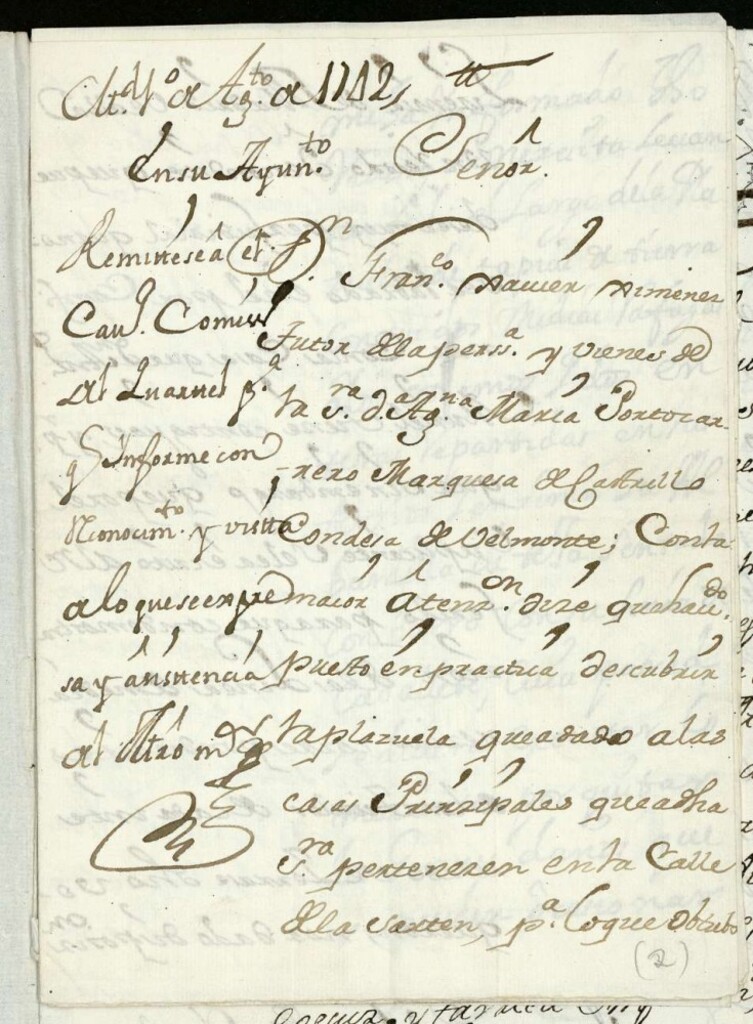 M.d 1º de Agto de 1712
En su Ayunto
Remitese a el
Cavº Comisº
del Quartel pª
q Informe con
Reconocimto y vista
a lo que se expre
sa y ansistencia
del Mro mr
tt
Señor
Dn Franco Xavier Ximenez
Tutor de la persª y vienes de
la Sra Dª Agna Maria Portocar-
rero Marquesa de Castrillo
Condesa de Velmonte; Con la
maior Atenzon dize que havdo
puesto en practica descubrir
la plazuela que a dado a las
casas Prinzipales que a dha
Sra pertenezen en la Calle
de la Sarten, pª lo que obtubo
(2)